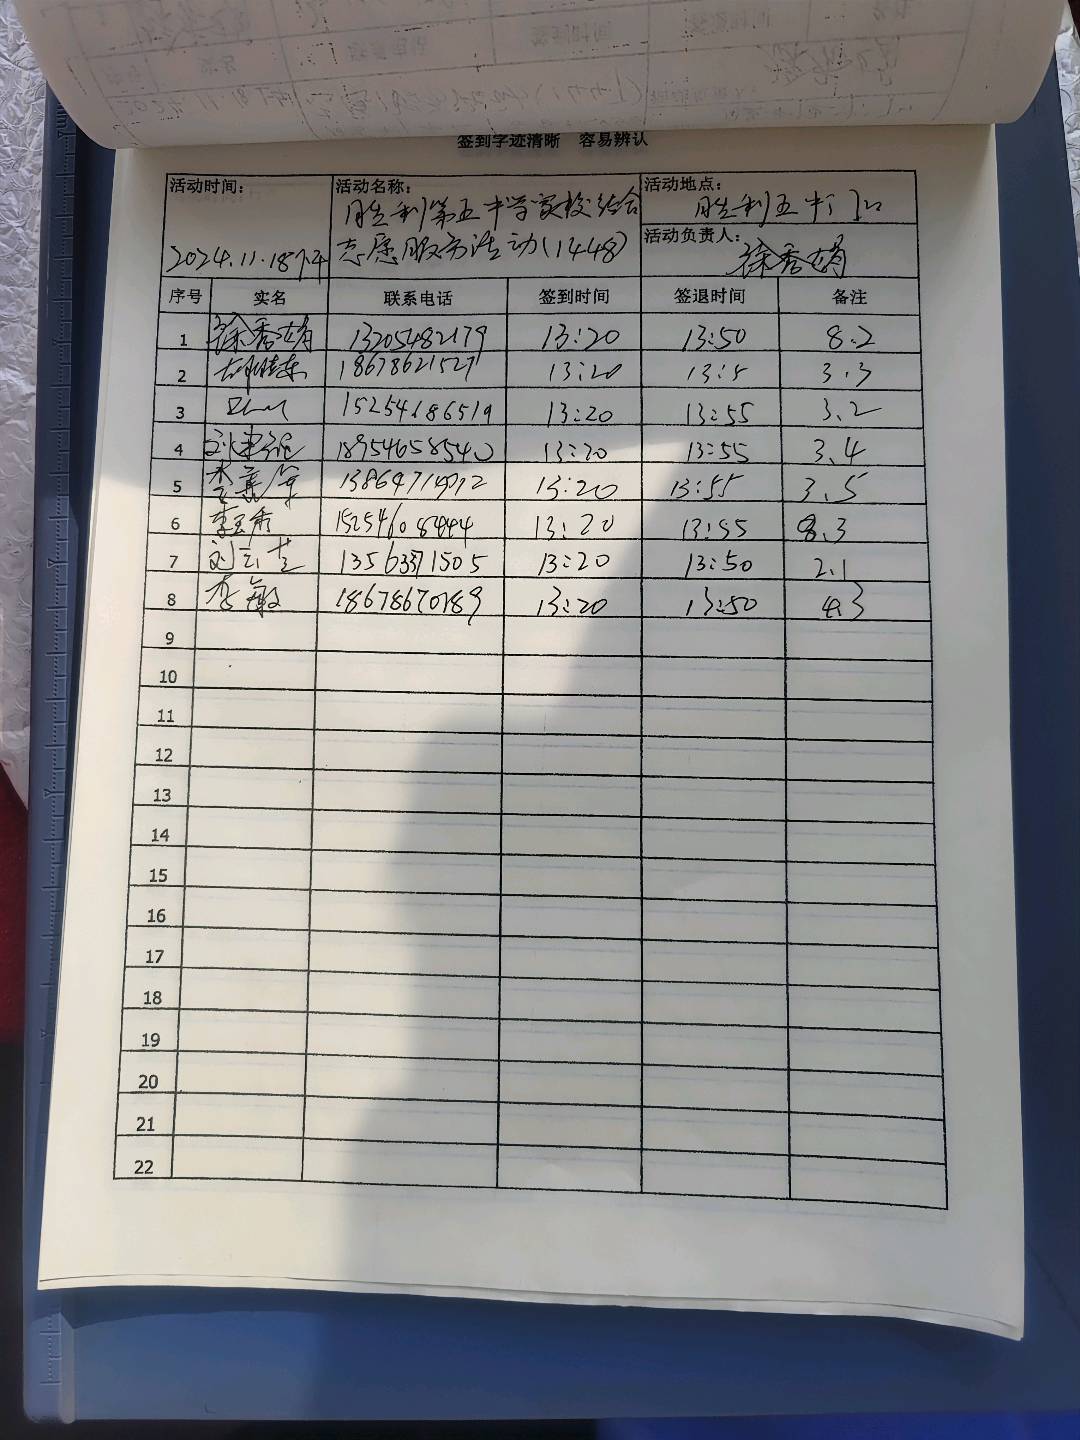 签到字迹清晰 容易辨认
活动时间： 2024.11.18下午
活动名称： 胜利第五中学家校结合
志愿服务活动(1448)
活动地点： 胜利五中门口
活动负责人： 徐秀娟
序号 实名 联系电话 签到时间 签退时间 备注
1 徐秀娟 13205482179 13:20 13:50 8.2
2 18678621527 13:20 3.3
3 15254686519 13:20 13:55 3.2
4 18954658540 13:20 13:55 3.4
5 13:20 13:55 3.5
6 李玉秀 13:20 13:55 8.3
7 13:20 13:50 2.1
8 李敏 18678670189 13:20 13:50 4.3
9
10
11
12
13
14
15
16
17
18
19
20
21
22